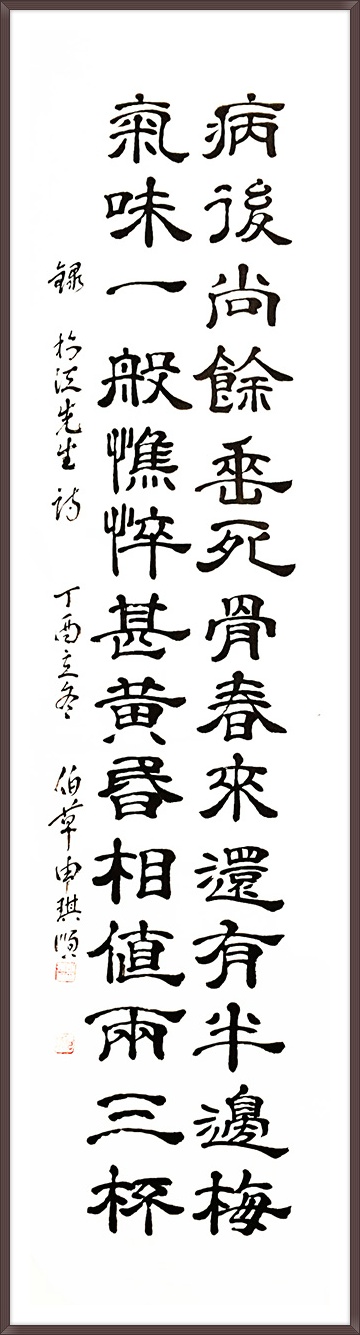 病後尚餘垂死骨春來還有半邊梅
氣味一般憔悴甚黃昏相值兩三杯
錄 先生詩 丁酉立冬 伯草申琪順